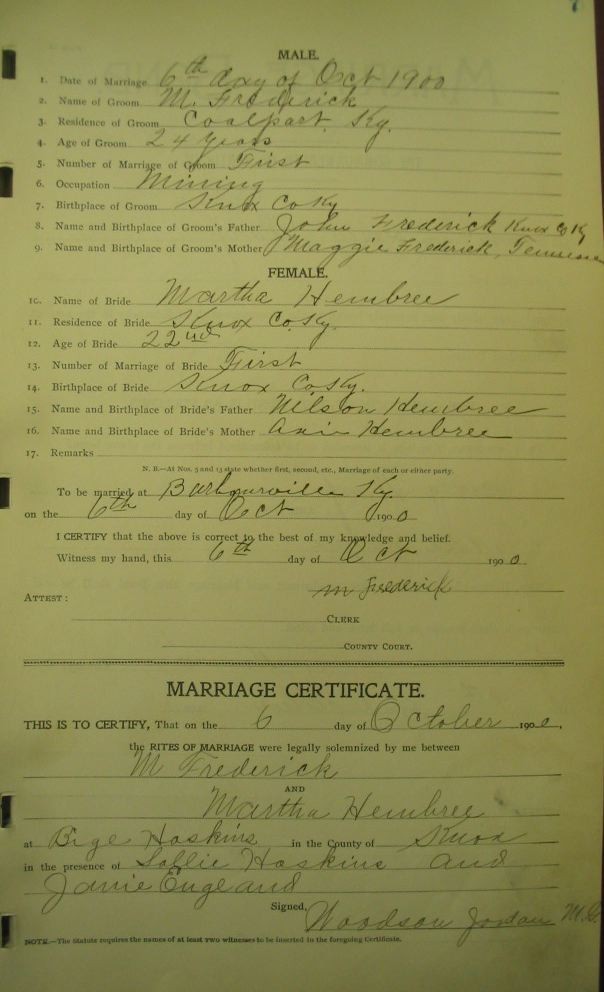 MALE.
1. Date of Marriage 6th day of Oct 1900
2. Name of Groom M. Frederick
3. Residence of Groom Coalpart Ky.
4. Age of Groom 24 years
5. Number of Marriage of Groom First
6. Occupation Mining
7. Birthplace of Groom Knox Co Ky
8. Name and Birthplace of Groom's Father John Frederick Knox Co Ky
9. Name and Birthplace of Groom's Mother Maggie Frederick, Tennessee
FEMALE.
10. Name of Bride Martha Hembree
11. Residence of Bride Knox Co. Ky.
12. Age of Bride 22
13. Number of Marriage of Bride First
14. Birthplace of Bride Knox Co Ky.
15. Name and Birthplace of Bride's Father Nilson Hembree
16. Name and Birthplace of Bride's Mother Hembree
17. Remarks
N. B.—At Nos. 5 and 13 state whether first, second, etc., Marriage of each or either party.
To be married at Barbourville Ky.
on the 6th day of Oct 1900
I CERTIFY that the above is correct to the best of my knowledge and belief.
Witness my hand, this 6th day of Oct 1900.
M Frederick
ATTEST:
CLERK
COUNTY COURT.
MARRIAGE CERTIFICATE.
THIS IS TO CERTIFY, That on the 6 day of October 1900,
the RITES OF MARRIAGE were legally solemnized by me between
M Frederick
AND
Martha Hembree
at Bige Hoskins in the County of Knox
in the presence of Sallie Hoskins and
Janie England
Signed, Woodson Jordan M.G.
NOTE.—The Statute requires the names of at least two witnesses to be inserted in the foregoing Certificate.